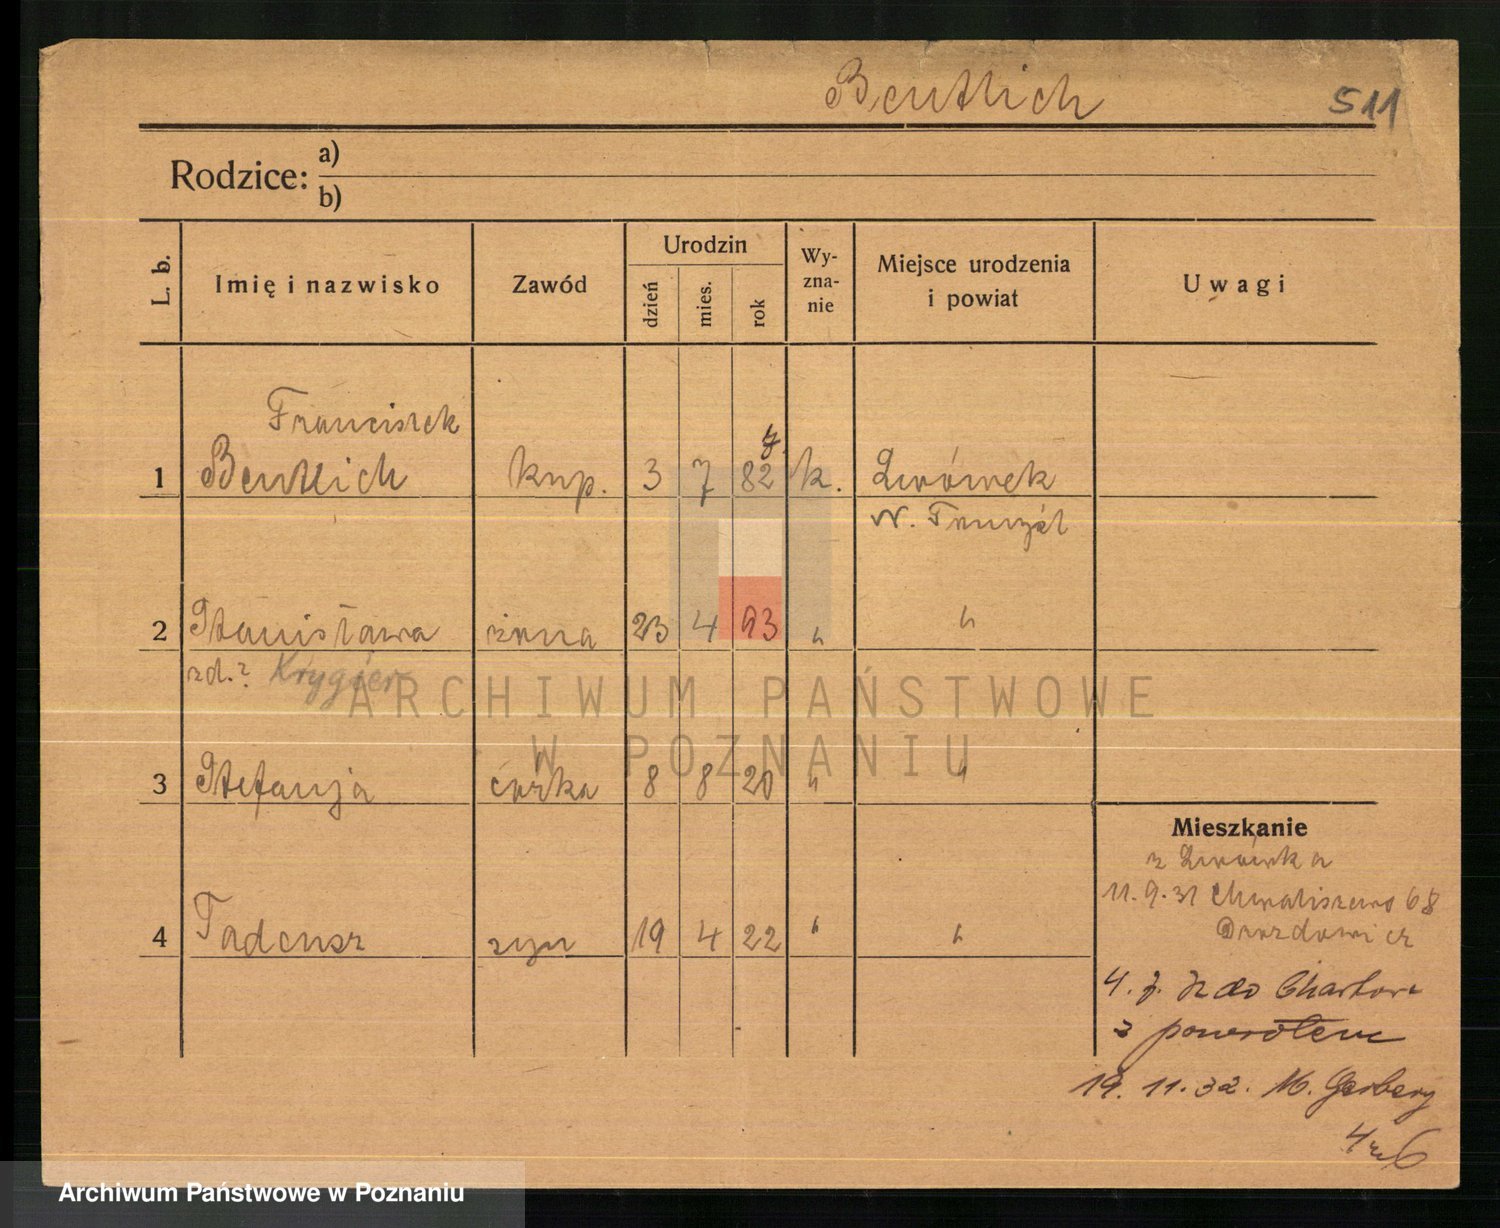 Bentlich 511
Rodzice: a)
b)
L. b. Imię i nazwisko Zawód Urodzin dzień mies. rok Wyznanie Miejsce urodzenia i powiat Uwagi
Franciszek
7
1 Bentlich kup. 3 7 82 k. Lwówek
N. Tomyśl
2 Stanisława żona 23 4 93 " "
zd.? Krygier
ARCHIWUM PAŃSTWOWE
W POZNANIU
3 Stefanja córka 8 8 20 " "
Mieszkanie
z Lwówka
11.9.31 Chwaliszewo 68
Drozdowicz
4 Tadeusz syn 19 4 22 " "
4. 7. do Chartowa
z powrotem
19. 11. 32. M. Garbary
46
Archiwum Państwowe w Poznaniu